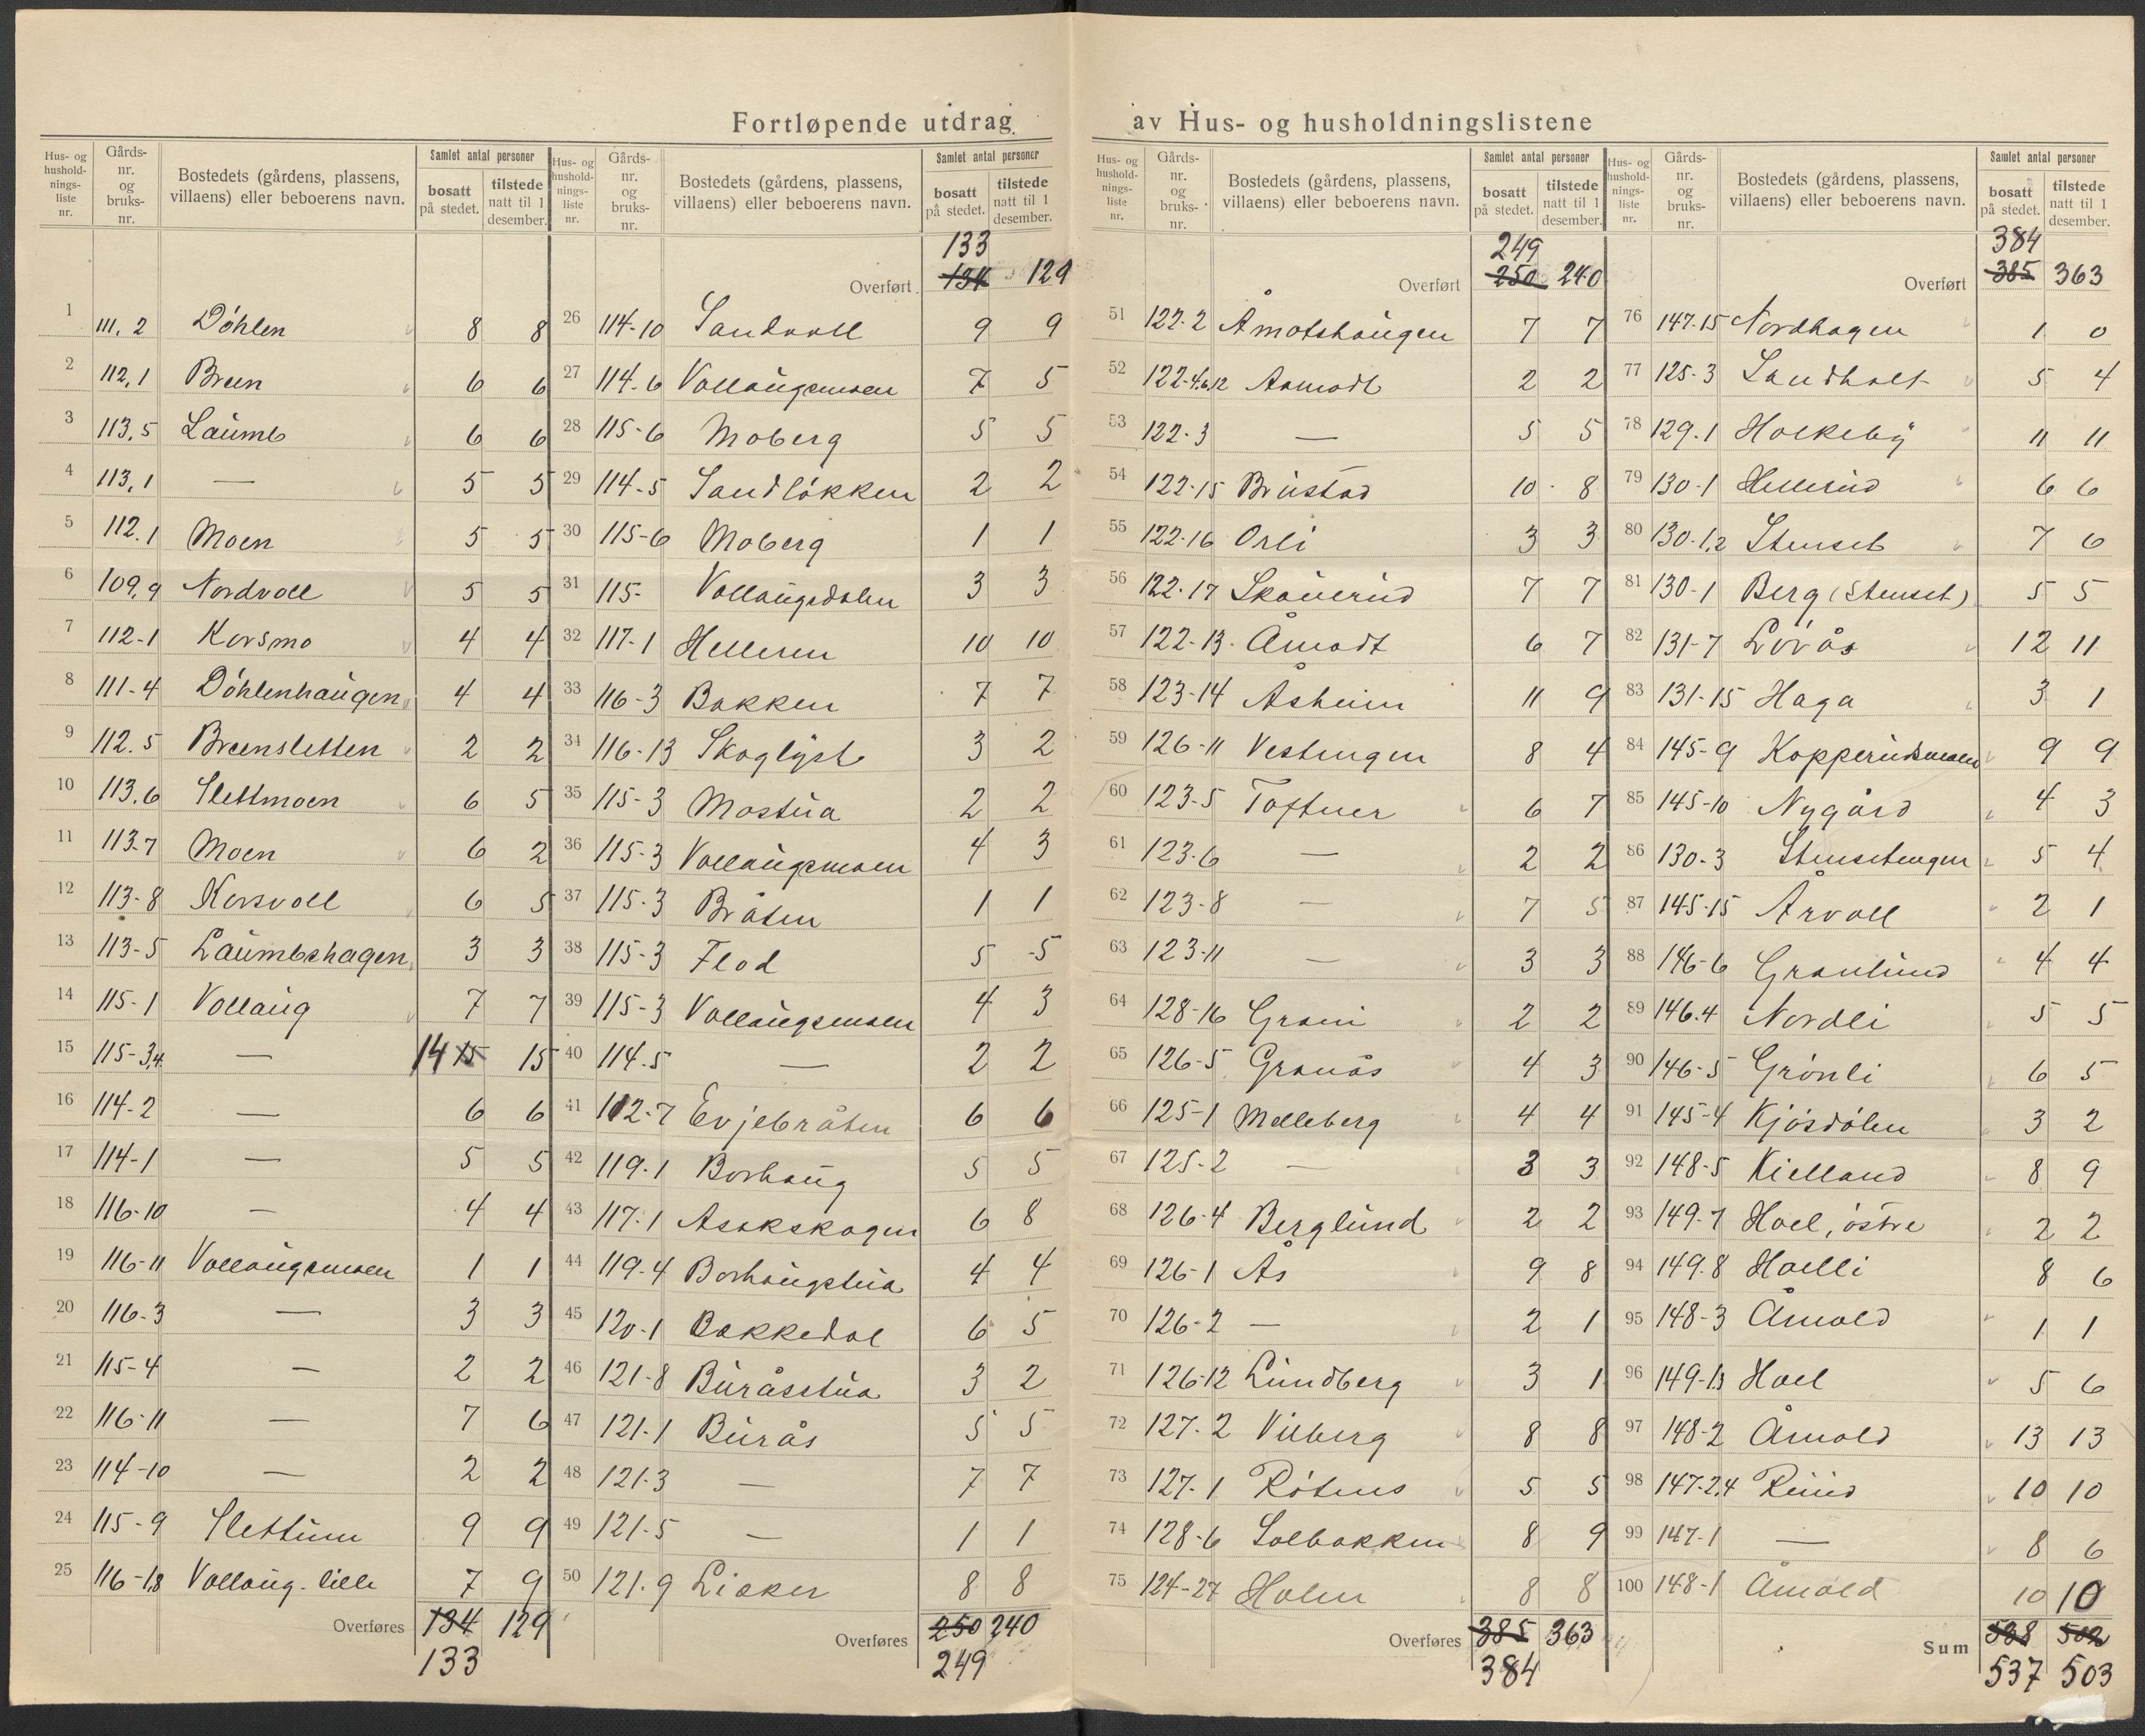 Fortløpende utdrag av Hus- og husholdningslistene
Hus- og husholdnings-liste nr. | Gårds-nr. og bruks-nr. | Bostedets (gårdens, plassens, villaens) eller beboerens navn. | Samlet antal personer bosatt på stedet. | tilstede natt til 1 desember.
1 111.2 Döhlen 8 8
2 112,1 Breen 6 6
3 113,5 Laumb 6 6
4 113,1 — 5 5
5 112.1 Moen 5 5
6 109,9 Nordvoll 5 5
7 112-1 Korsmo 4 4
8 111-4 Döhlenhaugen 4 4
9 112.5 Breensletten 2 2
10 113,6 Slettmoen 6 5
11 113.7 Moen 6 2
12 113-8 Korsvoll 6 5
13 113-5 Laumbshagen 3 3
14 115-1 Vollaug 7 7
15 115-3,4 — 14 15 15
16 114-2 — 6 6
17 114-1 — 5 5
18 116-10 — 4 4
19 116-11 Vollaugsmoen 1 1
20 116-3 — 3 3
21 115-4 — 2 2
22 116-11 — 7 6
23 114-10 — 2 2
24 115-9 Slettum 9 9
25 116-1,8 Vollaug. lille 7 9
Overføres 134 129
133
Hus- og husholdnings-liste nr. | Gårds-nr. og bruks-nr. | Bostedets (gårdens, plassens, villaens) eller beboerens navn. | Samlet antal personer bosatt på stedet. | tilstede natt til 1 desember.
133
Overført 134 129
26 114-10 Sandvoll 9 9
27 114-6 Vollaugsmoen 7 5
28 115-6 Moberg 5 5
29 114-5 Sandløkken 2 2
30 115-6 Moberg 1 1
31 115- Vollaugsdalen 3 3
32 117-1 Helleren 10 10
33 116-3 Bakken 7 7
34 116-13 Skoglyst 3 2
35 115-3 Mostua 2 2
36 115-3 Vollaugsmoen 4 3
37 115-3 Bråten 1 1
38 115-3 Flod 5 5
39 115-3 Vollaugsmoen 4 3
40 114.5 — 2 2
41 112-7 Evjebråten 6 6
42 119.1 Borhaug 5 5
43 117.1 Asakskogen 6 8
44 119-4 Borhaugstua 4 4
45 120-1 Bakkedal 6 5
46 121-8 Buråsstua 3 2
47 121-1 Burås 5 5
48 121-3 — 7 7
49 121-5 — 1 1
50 121.9 Liaker 8 8
Overføres 250 240
249
Hus- og husholdnings-liste nr. | Gårds-nr. og bruks-nr. | Bostedets (gårdens, plassens, villaens) eller beboerens navn. | Samlet antal personer bosatt på stedet. | tilstede natt til 1 desember.
249
Overført 250 240
51 122-2 Åmotshaugen 7 7
52 122-4,6,12 Aamodt 2 2
53 122-3 — 5 5
54 122-15 Brustad 10 8
55 122-16 Orli 3 3
56 122-17 Skauerud 7 7
57 122-13 Åmodt 6 7
58 123-14 Åsheim 11 9
59 126-11 Vestengen 8 4
60 123-5 Toftner 6 7
61 123-6 — 2 2
62 123-8 — 7 5
63 123-11 — 3 3
64 128-16 Grani 2 2
65 126-5 Granås 4 3
66 125-1 Melleberg 4 4
67 125-2 — 3 3
68 126-4 Berglund 2 2
69 126-1 Ås 9 8
70 126-2 — 2 1
71 126-12 Lundberg 3 1
72 127-2 Vilberg 8 8
73 127-1 Røtnes 5 5
74 128-6 Solbakken 8 9
75 124-27 Holm 8 8
Overføres 385 363
384
Hus- og husholdnings-liste nr. | Gårds-nr. og bruks-nr. | Bostedets (gårdens, plassens, villaens) eller beboerens navn. | Samlet antal personer bosatt på stedet. | tilstede natt til 1 desember.
384
Overført 385 363
76 147.15 Nordhagen 1 0
77 125-3 Sandholt 5 4
78 129.1 Holkeby 11 11
79 130-1 Hellerud 6 6
80 130-1,2 Stenset 7 6
81 130-1 Berg (Stenset) 5 5
82 131-7 Lövås 12 11
83 131-15 Haga 3 1
84 145-9 Kopperudsmoen 9 9
85 145-10 Nygård 4 3
86 130-3 Stensetengen 5 4
87 145-15 Årvoll 2 1
88 146-6 Granlund 4 4
89 146.4 Nordli 5 5
90 146-5 Grönli 6 5
91 145-4 Kjösdölen 3 2
92 148-5 Kielland 8 9
93 149-7 Hoel, östre 2 2
94 149.8 Hoelli 8 6
95 148-3 Årnold 1 1
96 149-13 Hoel 5 6
97 148-2 Årnold 13 13
98 147-2,4 Ruud 10 10
99 147-1 — 8 6
100 148-1 Årnold 10 10
Sum 538 502
537 503